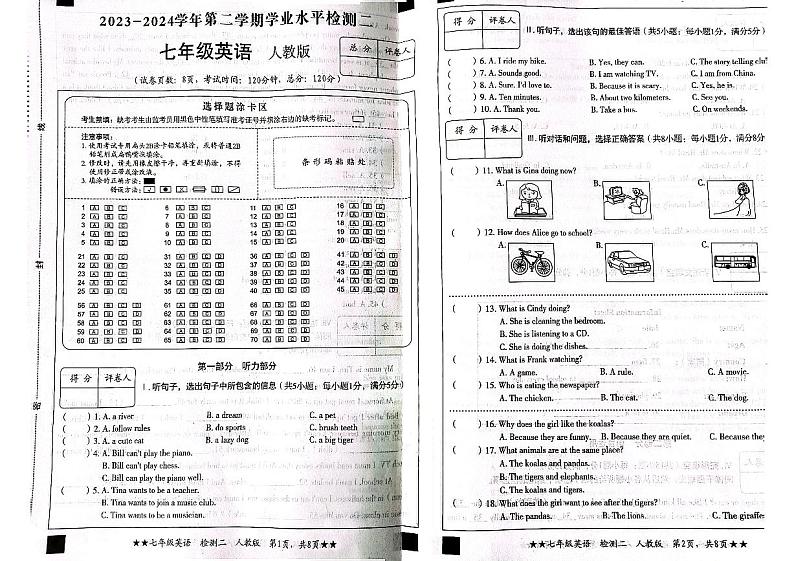 2023-2024学年第二学期学业水平检测二
七年级英语 人教版
总 分 评卷人
(试卷页数：8页，考试时间：120分钟，总分：120分)
选择题涂卡区
考生禁填：缺考考生由监考员用黑色中性笔填写准考证号并填涂右边的缺考标记。
注意事项：
1. 使用考试专用扁头2B涂卡铅笔填涂，或将普通2B
铅笔削成扁鸭嘴状填涂。
2. 修改时，请先用橡皮擦干净，再重新填涂，不得
使用修正带或涂改液。
3. 填涂的正确方法：
错误方法：
条形码粘贴处
1 A B C 6 A B C 11 A B C 16 A B C
2 A B C 7 A B C 12 A B C 17 A B C
3 A B C 8 A B C 13 A B C 18 A B C
4 A B C 9 A B C 14 A B C 19 A B C
5 A B C 10 A B C 15 A B C 20 A B C
21 A B C D 31 A B C D 36 A B C D 41 A B C D
22 A B C D 32 A B C D 37 A B C D 42 A B C D
23 A B C D 33 A B C D 38 A B C D 43 A B C D
24 A B C D 34 A B C D 39 A B C D 44 A B C D
25 A B C D 35 A B C D 40 A B C D 45 A B C D
56 A B C D 61 A B C D 66 A B C D
57 A B C D 62 A B C D 67 A B C D
58 A B C D 63 A B C D 68 A B C D
59 A B C D 64 A B C D 69 A B C D
60 A B C D 65 A B C D 70 A B C D
第一部分 听力部分
得 分 评卷人
I. 听句子，选出句子中所包含的信息（共5小题；每小题1分，满分5分）
( ) 1. A. a river B. a dream C. a pet
( ) 2. A. follow rules B. do sports C. brush teeth
( ) 3. A. a cute cat B. a lazy dog C. a big tiger
( ) 4. A. Bill can't play the piano.
B. Bill can't play chess.
C. Bill can play the piano well.
( ) 5. A. Tina wants to be a teacher.
B. Tina wants to join a music club.
C. Tina wants to be a musician.
★★七年级英语 检测二 人教版 第1页，共8页★★
线
封
密
得 分 评卷人
II. 听句子，选出该句的最佳答语（共5小题；每小题1分，满分5分）
( ) 6. A. I ride my bike. B. Yes, they can. C. The story telling clu
( ) 7. A. Sounds good. B. I am watching TV. C. I am from China.
( ) 8. A. Sure. I'd love to. B. Because it is scary. C. Yes, he is.
( ) 9. A. Ten minutes. B. About two kilometers. C. See you.
( ) 10. A. Thank you. B. Take a bus. C. On weekends.
得 分 评卷人
III. 听对话和问题，选择正确答案（共8小题；每小题1分，满分8分
( ) 11. What is Gina doing now?
A. B. C.
( ) 12. How does Alice go to school?
A. B. C.
( ) 13. What is Cindy doing?
A. She is cleaning the bedroom.
B. She is listening to a CD.
C. She is doing the dishes.
( ) 14. What is Frank watching?
A. A game. B. A rule. C. A movie.
( ) 15. Who is eating the newspaper?
A. The chicken. B. The cat. C. The dog.
( ) 16. Why does the girl like the koalas?
A. Because they are funny. B. Because they are quiet. C. Because they
( ) 17. What animals are at the same place?
A. The koalas and pandas.
B. The tigers and elephants.
C. The koalas and tigers.
( ) 18. What does the girl want to see after the tigers?
A. The pandas. B. The lions. C. The giraffe
★★七年级英语 检测二 人教版 第2页，共8页★★